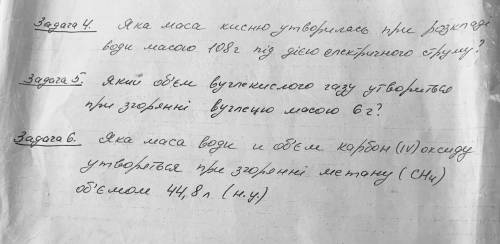 Задача 4. Яка маса кисню утворилась при розкладі
води масою 108г під дією електричного струму?
Задача 5. Який об'єм вуглекислого газу утвориться
при згорянні вуглецю масою 6 г?
Задача 6. Яка маса води и об'єм карбон (IV) оксиду
утвориться при згорянні метану (CH4)
об'ємом 44,8 л. (н.у)